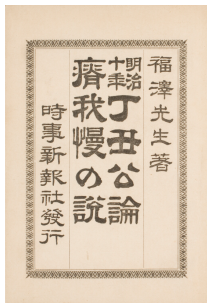 福澤先生著
明治十年
丁丑公論
瘠我慢の説
時事新報社發行